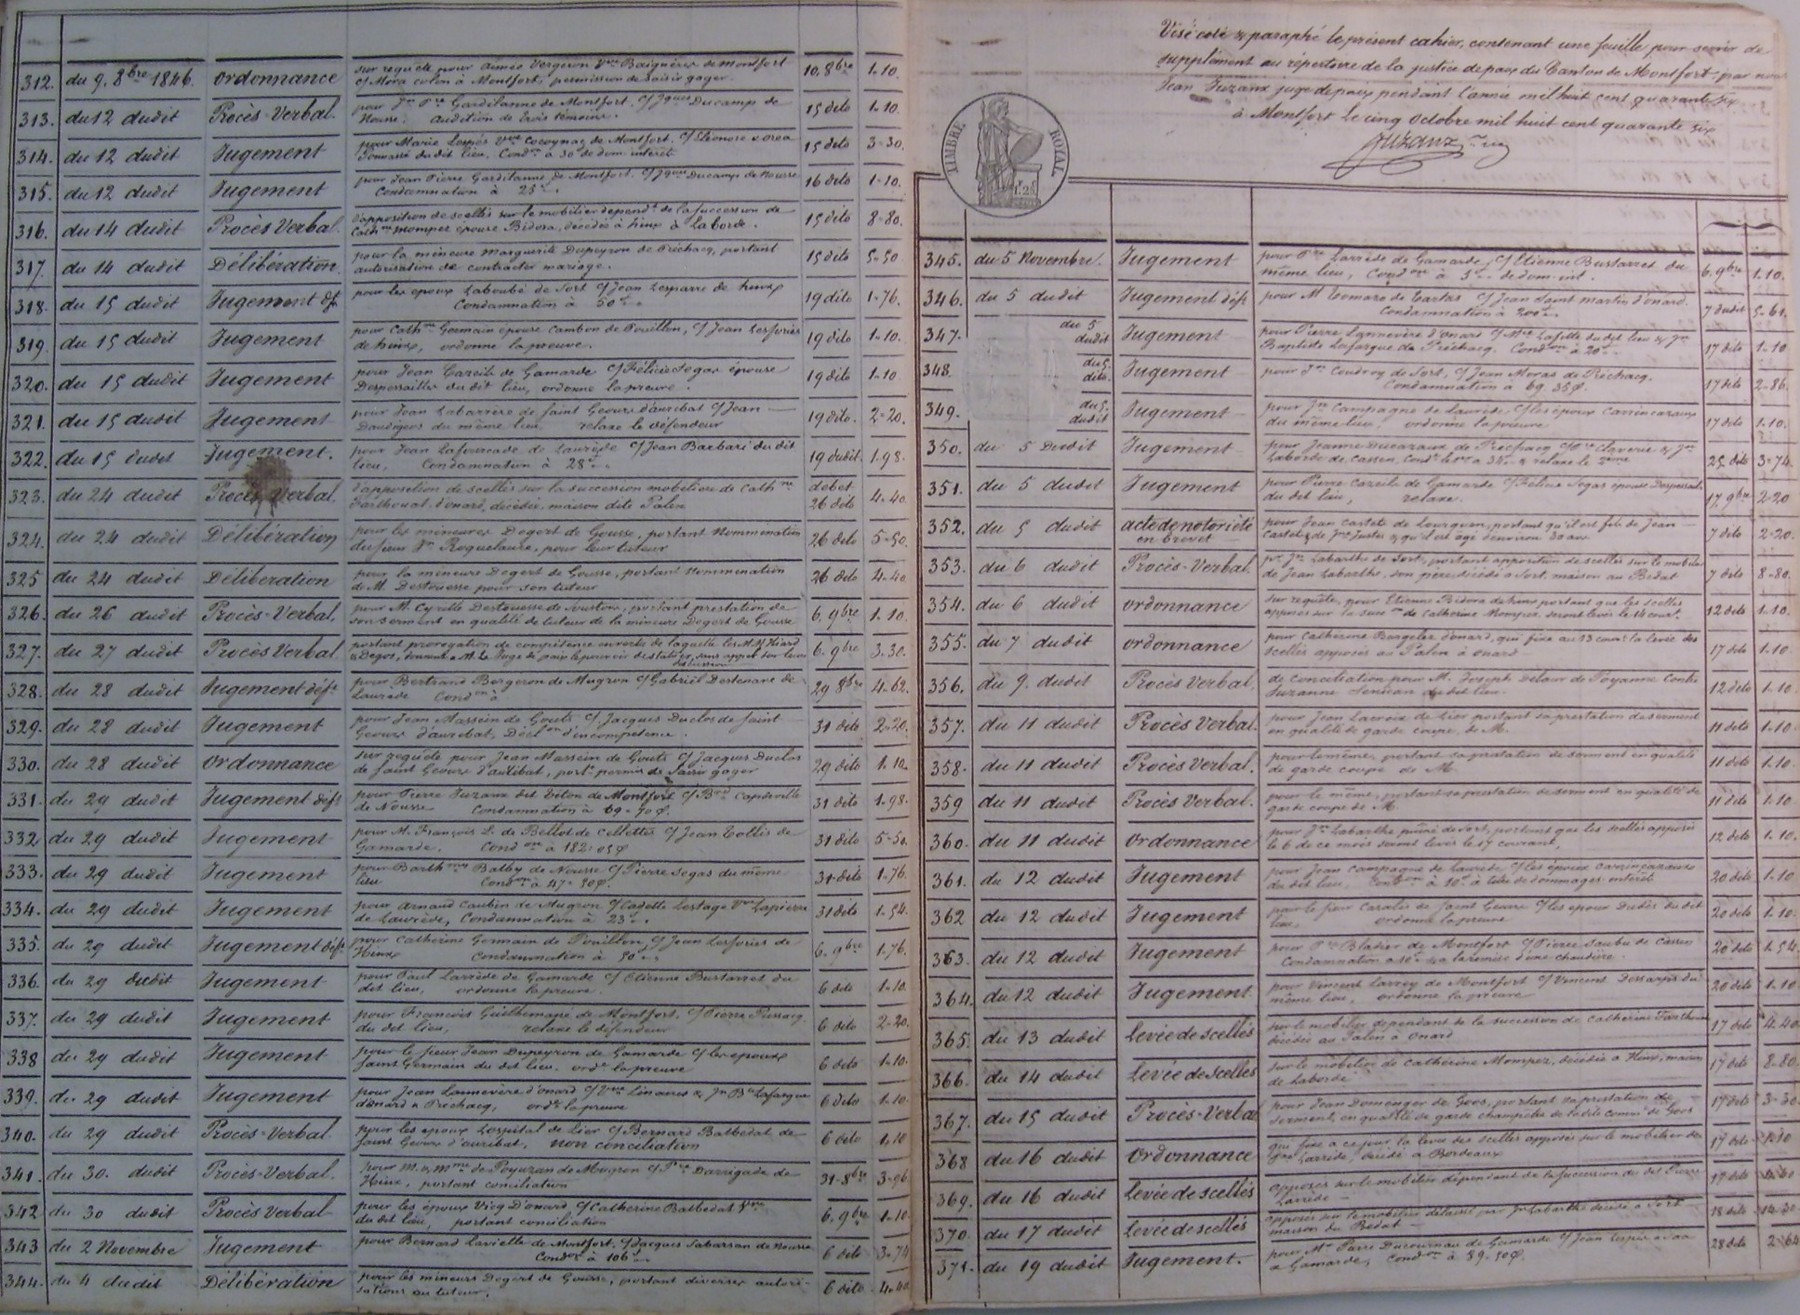 312. du 9. 8bre 1846. Ordonnance sur requête pour Aimée Vergeron Vve Baignères de Montfort 10. 8bre 1-10.
Mora colon à Montfort, permission de saisir gager.
313. du 12 dudit Procès-Verbal. pour Jn Pre Gardilanne de Montfort, C/ Jques Ducamp de 15 dito 1-10.
Nousse. audition de trois témoins.
314. du 12 dudit Jugement pour Marie Lespès Vve Cocoynaq de Montfort. C/ Eléonore 15 dito 3-30.
du dit lieu. Condon à 30 de dom. intérêt
315. du 12 dudit Jugement pour Jean Pierre Gardilanne de Montfort. C/ Jques Ducamp de Nousse 16 dito 1-10.
Condamnation à 25
316. du 14 dudit Procès Verbal d'apposition de scellés sur le mobilier depend.t de la succession de 15 dito 8-80.
Cathne Mompez épouse Bidora, décédée à hinx à Laborde.
317. du 14 dudit Délibération. pour la mineure Marguerite Dupeyron de Préchacq, portant 15 dito 5-50
autorisation de contracter mariage.
318. du 15 dudit Jugement df. pour les époux Laboubé de Sort C/ Jean Lesparre de hinx 19 dito 1-76.
Condamnation à 50
319. du 15 dudit Jugement pour Cathne Germain épouse Cambon de Pouillon, C/ Jean Lesfories 19 dito 1-10.
de hinx, ordonne la preuve.
320. du 15 dudit Jugement pour Jean Cazeils de Gamarde C/ Félicie Segas épouse 19 dito 1-10
Despessailles du dit lieu, ordonne la preuve.
321. du 15 dudit Jugement pour Jean Labarrère de Saint Geours d'auribat C/ Jean 19 dito. 2-20.
Daudigeos du même lieu. relaxe le défendeur
322. du 15 dudit Jugement. pour Jean Lafourcade de Laurède C/ Jean Barbari du dit 19 dudit. 1-98.
lieu, Condamnation à 28
323. du 24 dudit Procès Verbal. d'apposition de scellés sur la succession mobilière de Cathne débet 4-40.
Farthouat d'onard, décédée, maison dite Palin 26 dito
324. du 24 dudit Délibération pour les mineures Degert de Gousse, portant Nommination 26 dito 5-50.
du sieur Roquelaure, pour leur tuteur
325 du 24 dudit Délibération pour la mineure Degert de Gousse, portant Nommination 26 dito 4-40
de M. Destouesse pour son tuteur
326. du 26 dudit Procès-Verbal. pour M. Cyrille Destouesse de Soustons, portant prestation de 6. 9bre 1-10.
son serment en qualité de tuteur de la mineure Degert de Gousse
327. du 27 dudit Procès Verbal portant prorogation de compétence en vertu de laquelle les MM 6. 9bre 3-30.
& Degos, donnent à M. le Juge de paix le pouvoir de statuer, sans appel sur leur
328. du 28 dudit Jugement déft pour Bertrand Bergeron de Mugron C/ Gabriel Destenave de 29 8bre 4-62.
Laurède Condon à
329. du 28 dudit Jugement pour Jean Massein de Gouts C/ Jacques Duclos de Saint 31 dito 2-20.
Geours d'auribat, Décl.on d'incompétence.
330. du 28 dudit Ordonnance sur requête pour Jean Massein de Gouts C/ Jacques Duclos 29 dito 1-10.
de Saint Geours d'auribat, port.t permis de saisir gager
331. du 29 dudit Jugement déft pour Pierre Juzanx dit Béton de Montfort C/ Bnd Capdeville 31 dito 1-98.
de Nousse Condamnation à 69-70
332. du 29 dudit Jugement pour M. François L. de Bellot de Cellettes C/ Jean Collis de 31 dito 5-50.
Gamarde. Condon à 182-05
333. du 29 dudit Jugement pour Barthmy Balby de Nousse C/ Pierre Segas du même 31 dito 1-76.
lieu Condon à 47-30
334. du 29 dudit Jugement pour Arnaud Caubin de Mugron C/ Cadette Lestage Vve Lapierre 31 dito 1-54.
de Laurède, Condamnation à 23
335. du 29 dudit Jugement déft pour Catherine Germain de Pouillon, C/ Jean Lesfories de 6. 9bre 1-76.
Hinx Condamnation à 50
336. du 29 dudit Jugement pour Paul Larrède de Gamarde C/ Etienne Bustarret du 6 dito 1-10.
dit lieu, ordonne la preuve.
337. du 29 dudit Jugement pour François Guilhemane de Montfort, C/ Pierre Pussacq 6 dito 2-20.
du dit lieu, relaxe le défendeur
338 du 29 dudit Jugement pour le sieur Jean Dupeyron de Gamarde C/ les époux 6 dito 1-10.
Saint Germain du dit lieu. ord. la preuve
339. du 29 dudit Jugement pour Jean Lannevère d'onard C/ Linarres & Jn Bte Lafargue 6 dito 1-10.
d'onard & Préchacq, ord. la preuve
340. du 29 dudit Procès-Verbal. pour les époux Lospital de Lier C/ Bernard Balbedat de 6 dito 1-10
Saint Geours d'auribat, non conciliation
341. du 30. dudit Procès-Verbal. pour M. & Mme de Poyuzan de Mugron C/ Pre Darrigade de 31-8bre 3-96
Hinx, portant conciliation
342 du 30 dudit Procès Verbal pour les époux Vicq D'onard, C/ Catherine Balbedat Vve 6. 9bre 1-10
du dit lieu, portant conciliation
343 du 2 Novembre Jugement pour Bernard Lavielle de Montfort, C/ Jacques Labarsan de Nousse 6 dito 3-74
Condon à 106
344. du 4 dudit Délibération pour les mineurs Degert de Gousse, portant diverses autori- 6 dito 4-40.
sations au tuteur.
Visé coté & paraphé le présent cahier, contenant une feuille pour servir de
supplément au répertoire de la justice de paix du Canton de Montfort, par nous
Jean Juzanx juge de paix pendant l'année mil huit cent quarante six
à Montfort le cinq Octobre mil huit cent quarante six
Juzanx
TIMBRE ROYAL
345. du 5 Novembre. Jugement pour Pre Larrède de Gamarde, C/ Etienne Bustarret du 6. 9bre 1-10.
même lieu, Condon à 5 de dom. int.
346. du 5 dudit Jugement déft pour M Domars de Tartas C/ Jean Saint martin d'onard. 7 dudit 5-61.
Condamnation à 200
347. du 5 dudit Jugement pour Pierre Lannevère d'onard C/ Lafitte du dit lieu & Jn 17 dito 1-10
Baptiste Lafargue de Préchacq. Condon à 20
348. du 5. dito. Jugement pour Jn Coudroy de Sort, C/ Jean Moras de Préchacq. 17 dito 2-86.
Condamnation à 69 35
349. du 5. dudit Jugement pour Jn Campagne de Laurède, C/ les époux Carrincazaux 17 dito 1-10.
du même lieu, ordonne la preuve
350. du 5 Dudit Jugement pour Jeanne Ducazaux de Préchacq C/ Claverie & Jn 25 dito 3-74
Laborde de Cassen, Cond. le 1er à 35 & relaxe le 2ème
351. du 5 dudit Jugement pour Pierre Cazeils de Gamarde C/ Félicie Segas épouse Despessailles 17 9bre 2-20
du dit lieu, relaxe
352. du 5 dudit acte de notoriété en brevet pour Jean Castets de Lourquen, portant qu'il est fils de Jean 7 dito 2-20.
Castets & de Jne & qu'il est âgé d'environ 30 ans
353. du 6 dudit Procès-Verbal. pr Jn Labarthe de Sort, portant apposition de scellés sur le mobilier 7 dito 8-80.
de Jean Labarthe, son père décédé à Sort, maison au Bédat
354. du 6 dudit ordonnance sur requête, pour Etienne Bidora de hinx portant que les scellés 12 dito 1-10.
apposés sur la succ.on de Catherine Mompez, seront levés le 14 cour.t
355. du 7 dudit ordonnance pour Catherine Bergelés d'onard, qui fixe au 13 cour.t la levée des 17 dito 1-10
scellés apposés au Palin à onard
356. du 9. dudit Procès Verbal. de conciliation pour M. Joseph Delaur de Poyanne contre 12 dito 1-10
Suzanne du dit lieu
357. du 11 dudit Procès Verbal. pour Jean Lacroix de Lier portant sa prestation de serment 11 dito 1-10
en qualité de garde coupe, de M.
358. du 11 dudit Procès Verbal. pour le même, portant sa prestation de serment en qualité 11 dito 1-10.
de garde coupe de M.
359 du 11 dudit Procès Verbal. pour le même, portant sa prestation de serment en qualité de 11 dito 1-10.
garde coupe de M
360. du 11 dudit Ordonnance pour Jn Labarthe puîné de Sort, portant que les scellés apposés 12 dito 1-10.
le 6 de ce mois seront levés le 17 courant.
361. du 12 dudit Jugement pour Jean Campagne de Laurède C/ les époux Carrincazaux 20 dito 1-10
du dit lieu, Condon à 10 à titre de dommages intérêts
362 du 12 dudit Jugement pour le sieur Cazalis de Saint Geours C/ les époux Dudès du dit 20 dito 1-10.
lieu, ordonne la preuve
363. du 12 dudit Jugement pour Pre Bladier de Montfort C/ Pierre Saubu de Cassen 20 dito 1-54.
Condamnation à & à la remise d'une chaudière.
364. du 12 dudit Jugement pour Vincent Larrey de Montfort C/ Vincent Descamps du 20 dito 1-10.
même lieu, ordonne la preuve
365. du 13 dudit Levée de scellés sur le mobilier dépendant de la succession de Catherine Farthouat 17 dito 4-40.
décédée au Palin à Onard
366. du 14 dudit Levée de scellés sur le mobilier de Catherine Mompez, décédée à Hinx, maison 17 dito 8-80.
de Laborde
367. du 15 dudit Procès-Verbal pour Jean Domenger de Goos, portant sa prestation de 17 dito 3-30.
serment, en qualité de garde champêtre de la dite comm. de Goos
368 du 16 dudit Ordonnance qui fixe à ce jour la levée des scellés apposés sur le mobilier de 17 dito 1-10
Larrède, décédé à Bordeaux
369. du 16 dudit Levée de scellés apposés sur le mobilier dépendant de la succession du dit Pierre 17 dito
Larrède
370. du 17 dudit Levée de scellés apposés sur le mobilier délaissé par Jn Labarthe décédé à Sort 18 dito
maison du Bédat
371. du 19 dudit Jugement. pour Mr Pierre Ducournau de Gamarde C/ Jean 28 dito 2-64
à Gamarde, Condon à 89-10